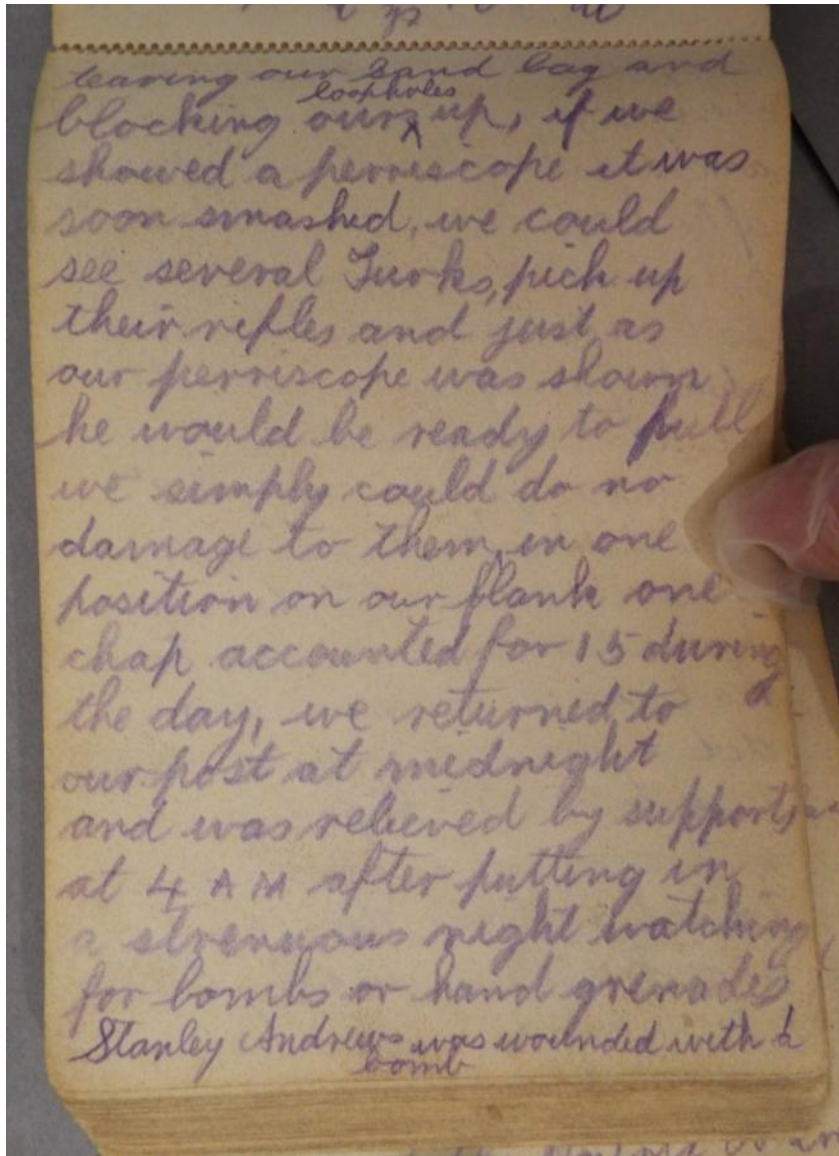 tearing our sand bag and
blocking our loopholes up, if we
showed a perriscope it was
soon smashed, we could
see several Turks, pick up
their rifles and just as
our perriscope was shown
he would be ready to pull
we simply could do no
damage to them, in one
position on our flank one
chap accounted for 15 during
the day, we returned to
our post at midnight
and was relieved by supports
at 4 AM after putting in
a strenuous night watching
for bombs or hand grenades
Stanley Andrews was wounded with a
bomb